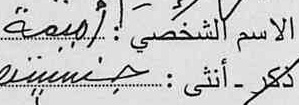 الاسم الشخصي : أميمة
ذكر - أنثى :